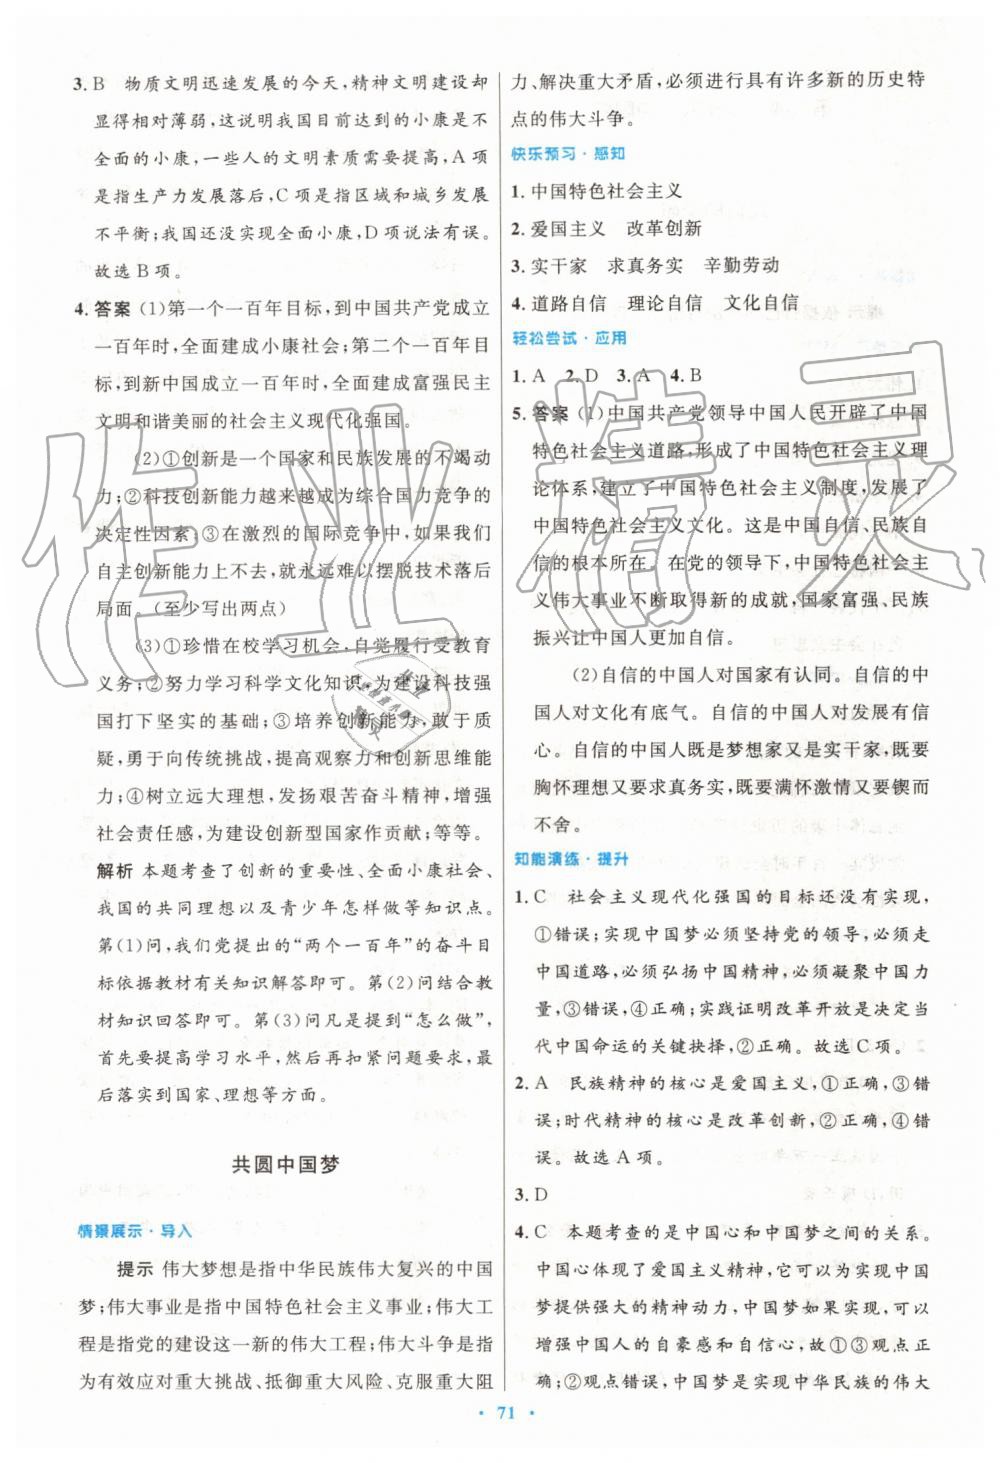 3. B　物质文明迅速发展的今天,精神文明建设却
显得相对薄弱,这说明我国目前达到的小康是不
全面的小康,一些人的文明素质需要提高,A项
是指生产力发展落后,C项是指区域和城乡发展
不平衡;我国还没实现全面小康,D项说法有误。
故选B项。
4. 答案 (1)第一个一百年目标,到中国共产党成立
一百年时,全面建成小康社会;第二个一百年目
标,到新中国成立一百年时,全面建成富强民主
文明和谐美丽的社会主义现代化强国。
(2)①创新是一个国家和民族发展的不竭动
力;②科技创新能力越来越成为综合国力竞争的
决定性因素;③在激烈的国际竞争中,如果我们
自主创新能力上不去,就永远难以摆脱技术落后
局面。(至少写出两点)
(3)①珍惜在校学习机会,自觉履行受教育
义务;②努力学习科学文化知识,为建设科技强
国打下坚实的基础;③培养创新能力,敢于质
疑,勇于向传统挑战,提高观察力和创新思维能
力;④树立远大理想,发扬艰苦奋斗精神,增强
社会责任感,为建设创新型国家作贡献;等等。
解析 本题考查了创新的重要性、全面小康社会、
我国的共同理想以及青少年怎样做等知识点。
第(1)问,我们党提出的“两个一百年”的奋斗目
标依据教材有关知识解答即可。第(2)问结合教
材知识回答即可。第(3)问凡是提到“怎么做”,
首先要提高学习水平,然后再扣紧问题要求,最
后落实到国家、理想等方面。
共圆中国梦
情景展示·导入
提示 伟大梦想是指中华民族伟大复兴的中国
梦;伟大事业是指中国特色社会主义事业;伟大工
程是指党的建设这一新的伟大工程;伟大斗争是指
为有效应对重大挑战、抵御重大风险、克服重大阻
力、解决重大矛盾,必须进行具有许多新的历史特
点的伟大斗争。
快乐预习·感知
1. 中国特色社会主义
2. 爱国主义　改革创新
3. 实干家　求真务实　辛勤劳动
4. 道路自信　理论自信　文化自信
轻松尝试·应用
1. A　2. D　3. A　4. B
5. 答案 (1)中国共产党领导中国人民开辟了中国
特色社会主义道路,形成了中国特色社会主义理
论体系,建立了中国特色社会主义制度,发展了
中国特色社会主义文化。这是中国自信、民族自
信的根本所在。在党的领导下,中国特色社会主
义伟大事业不断取得新的成就,国家富强、民族
振兴让中国人更加自信。
(2)自信的中国人对国家有认同。自信的中
国人对文化有底气。自信的中国人对发展有信
心。自信的中国人既是梦想家又是实干家,既要
胸怀理想又要求真务实,既要满怀激情又要锲而
不舍。
知能演练·提升
1. C　社会主义现代化强国的目标还没有实现,
①错误;实现中国梦必须坚持党的领导,必须走
中国道路,必须弘扬中国精神,必须凝聚中国力
量,③错误,④正确;实践证明改革开放是决定当
代中国命运的关键抉择,②正确。故选C项。
2. A　民族精神的核心是爱国主义,①正确,③错
误;时代精神的核心是改革创新,②正确,④错
误。故选A项。
3. D
4. C　本题考查的是中国心和中国梦之间的关系。
中国心体现了爱国主义精神,它可以为实现中国
梦提供强大的精神动力,中国梦如果实现,可以
增强中国人的自豪感和自信心。故①③观点正
确;②观点错误,中国梦是实现中华民族的伟大
· 71 ·
作业精灵